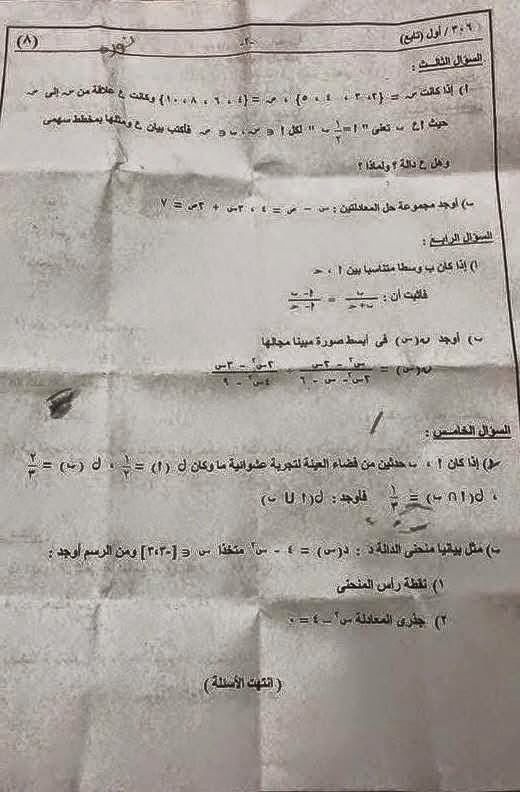 ٣٠٦ / أول (تابع)
-٢-
(٨)
السؤال الثالث :
أ) إذا كانت س = {٢، ٣ ، ٤ ، ٥} ، ص = {٤ ، ٦ ، ٨ ، ١٠} وكانت ع علاقة من س إلى ص
حيث أ ع ب تعنى " أ = ١/٢ ب " لكل أ ∈ س ، ب ∈ ص فأكتب بيان ع ومثلها بمخطط سهمى
وهل ع دالة ؟ ولماذا ؟
ب) أوجد مجموعة حل المعادلتين : س - ص = ٤ ، ٣س + ٢ص = ٧
السؤال الرابع :
أ) إذا كان ب وسطا متناسبا بين أ ، حـ
فأثبت أن : ب/(ب+حـ) = (أ-ب)/(أ-حـ)
ب) أوجد ن(س) فى أبسط صورة مبينا مجالها
ن(س) = (س٢ - ٢س)/(٢س٢ - س - ٦) ÷ (٢س٢ - ٣س)/(٤س٢ - ٩)
السؤال الخامس :
أ) إذا كان أ ، ب حدثين من فضاء العينة لتجربة عشوائية ما وكان ل(أ) = ١/٢ ، ل(ب) = ٢/٣
، ل(أ ∩ ب) = ١/٣ فأوجد : ل(أ ∪ ب)
ب) مثل بيانيا منحنى الدالة د : د(س) = ٤ - س٢ متخذا س ∈ [-٣،٣] ومن الرسم أوجد :
١) نقطة رأس المنحنى
٢) جذرى المعادلة س٢ - ٤ = ٠
( انتهت الأسئلة )